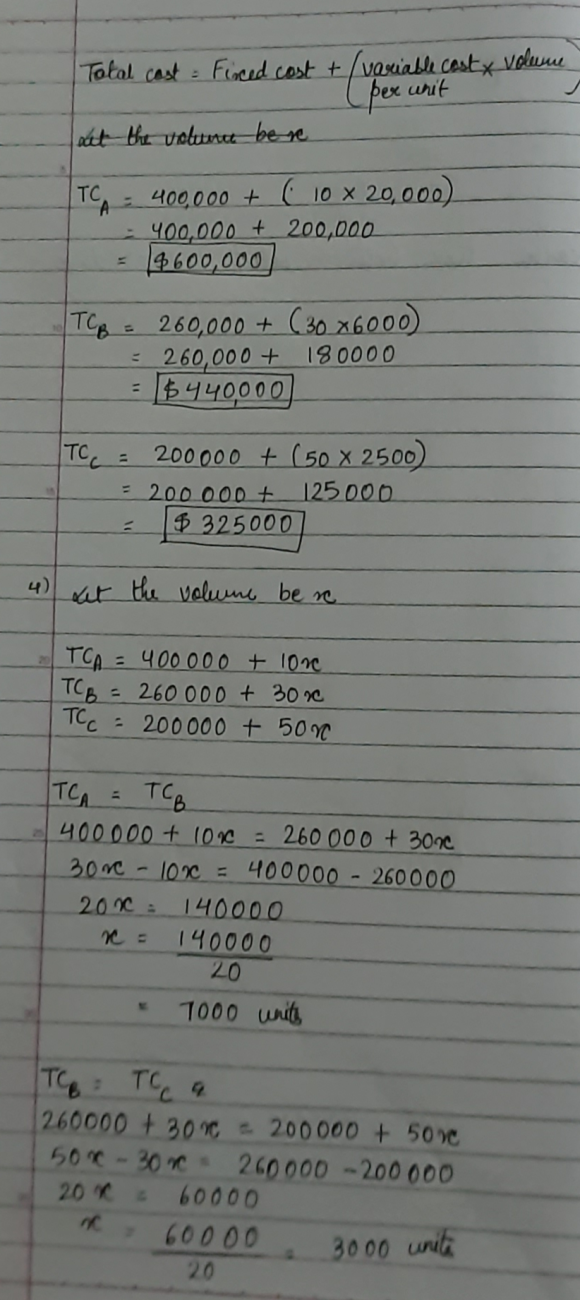 Total cost = Fixed cost + (variable cost × volume
per unit)
Let the volume be x
TC_A = 400,000 + ( 10 × 20,000)
= 400,000 + 200,000
= $600,000
TC_B = 260,000 + (30 × 6000)
= 260,000 + 180000
= $440,000
TC_C = 200000 + (50 × 2500)
= 200 000 + 125000
= $325000
4) Let the volume be x
TC_A = 400000 + 10x
TC_B = 260000 + 30x
TC_C = 200000 + 50x
TC_A = TC_B
400000 + 10x = 260000 + 30x
30x - 10x = 400000 - 260000
20x = 140000
x = 140000
20
= 7000 units
TC_B = TC_C
260000 + 30x = 200000 + 50x
50x - 30x = 260000 - 200000
20x = 60000
x = 60000 = 3000 units
20